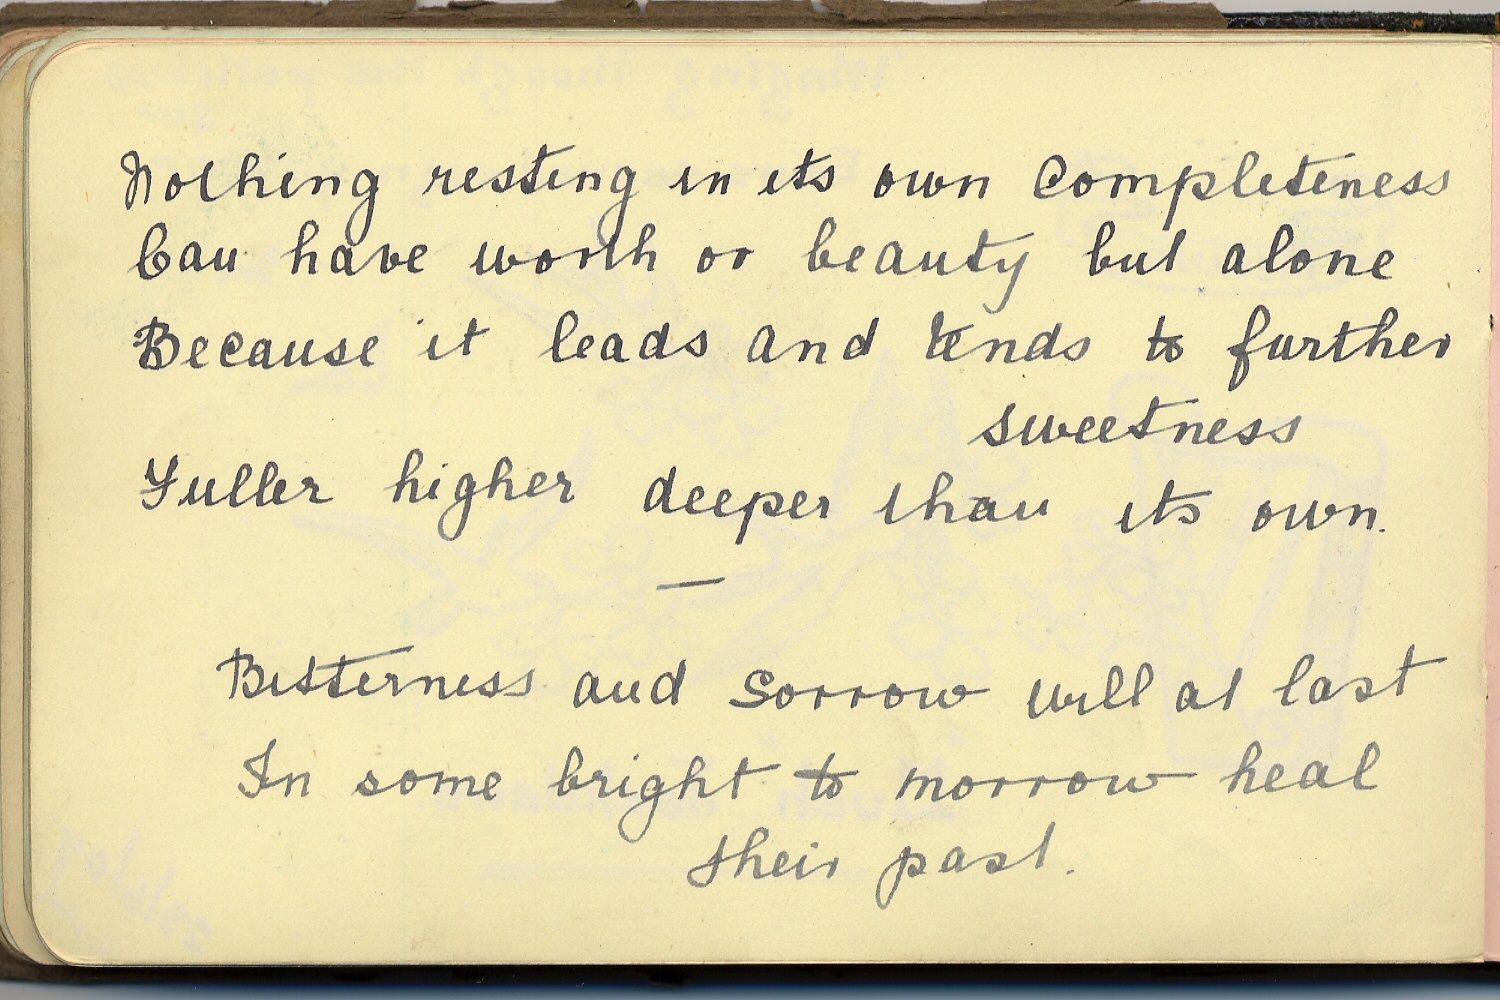 Nothing resting in its own completeness
Can have worth or beauty but alone
Because it leads and tends to further
sweetness
Fuller higher deeper than its own.
—
Bitterness and Sorrow will at last
In some bright to morrow heal
their past.